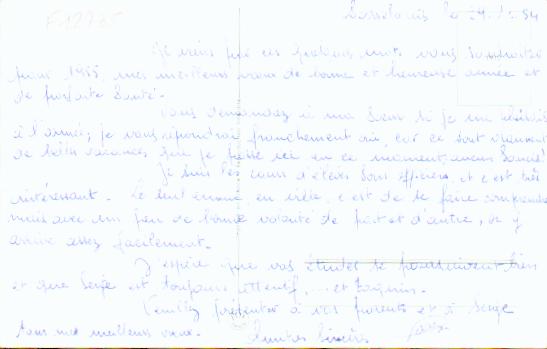 F12735
le 29.12.54
Je viens par ces quelques mots vous souhaiter
pour 1955, mes meilleurs vœux de bonne et heureuse année et
de parfaite santé.
Vous demandez à ma Sœur si je me plaisais
à l'armée; je vous répondrai franchement oui, car ce sont vraiment
de belles vacances que je passe ici en ce moment,
Je suis les cours d'élèves sous officiers et c'est très
intéressant. Le seul ennui, en ville, c'est de se faire comprendre
mais avec un peu de bonne volonté de part et d'autre, on y
arrive assez facilement.
J'espère que vos études se poursuivent bien
et que Serge est toujours attentif, ... et taquin.
Veuillez présenter à vos parents et à Serge
tous mes meilleurs vœux. Amitiés Sincères